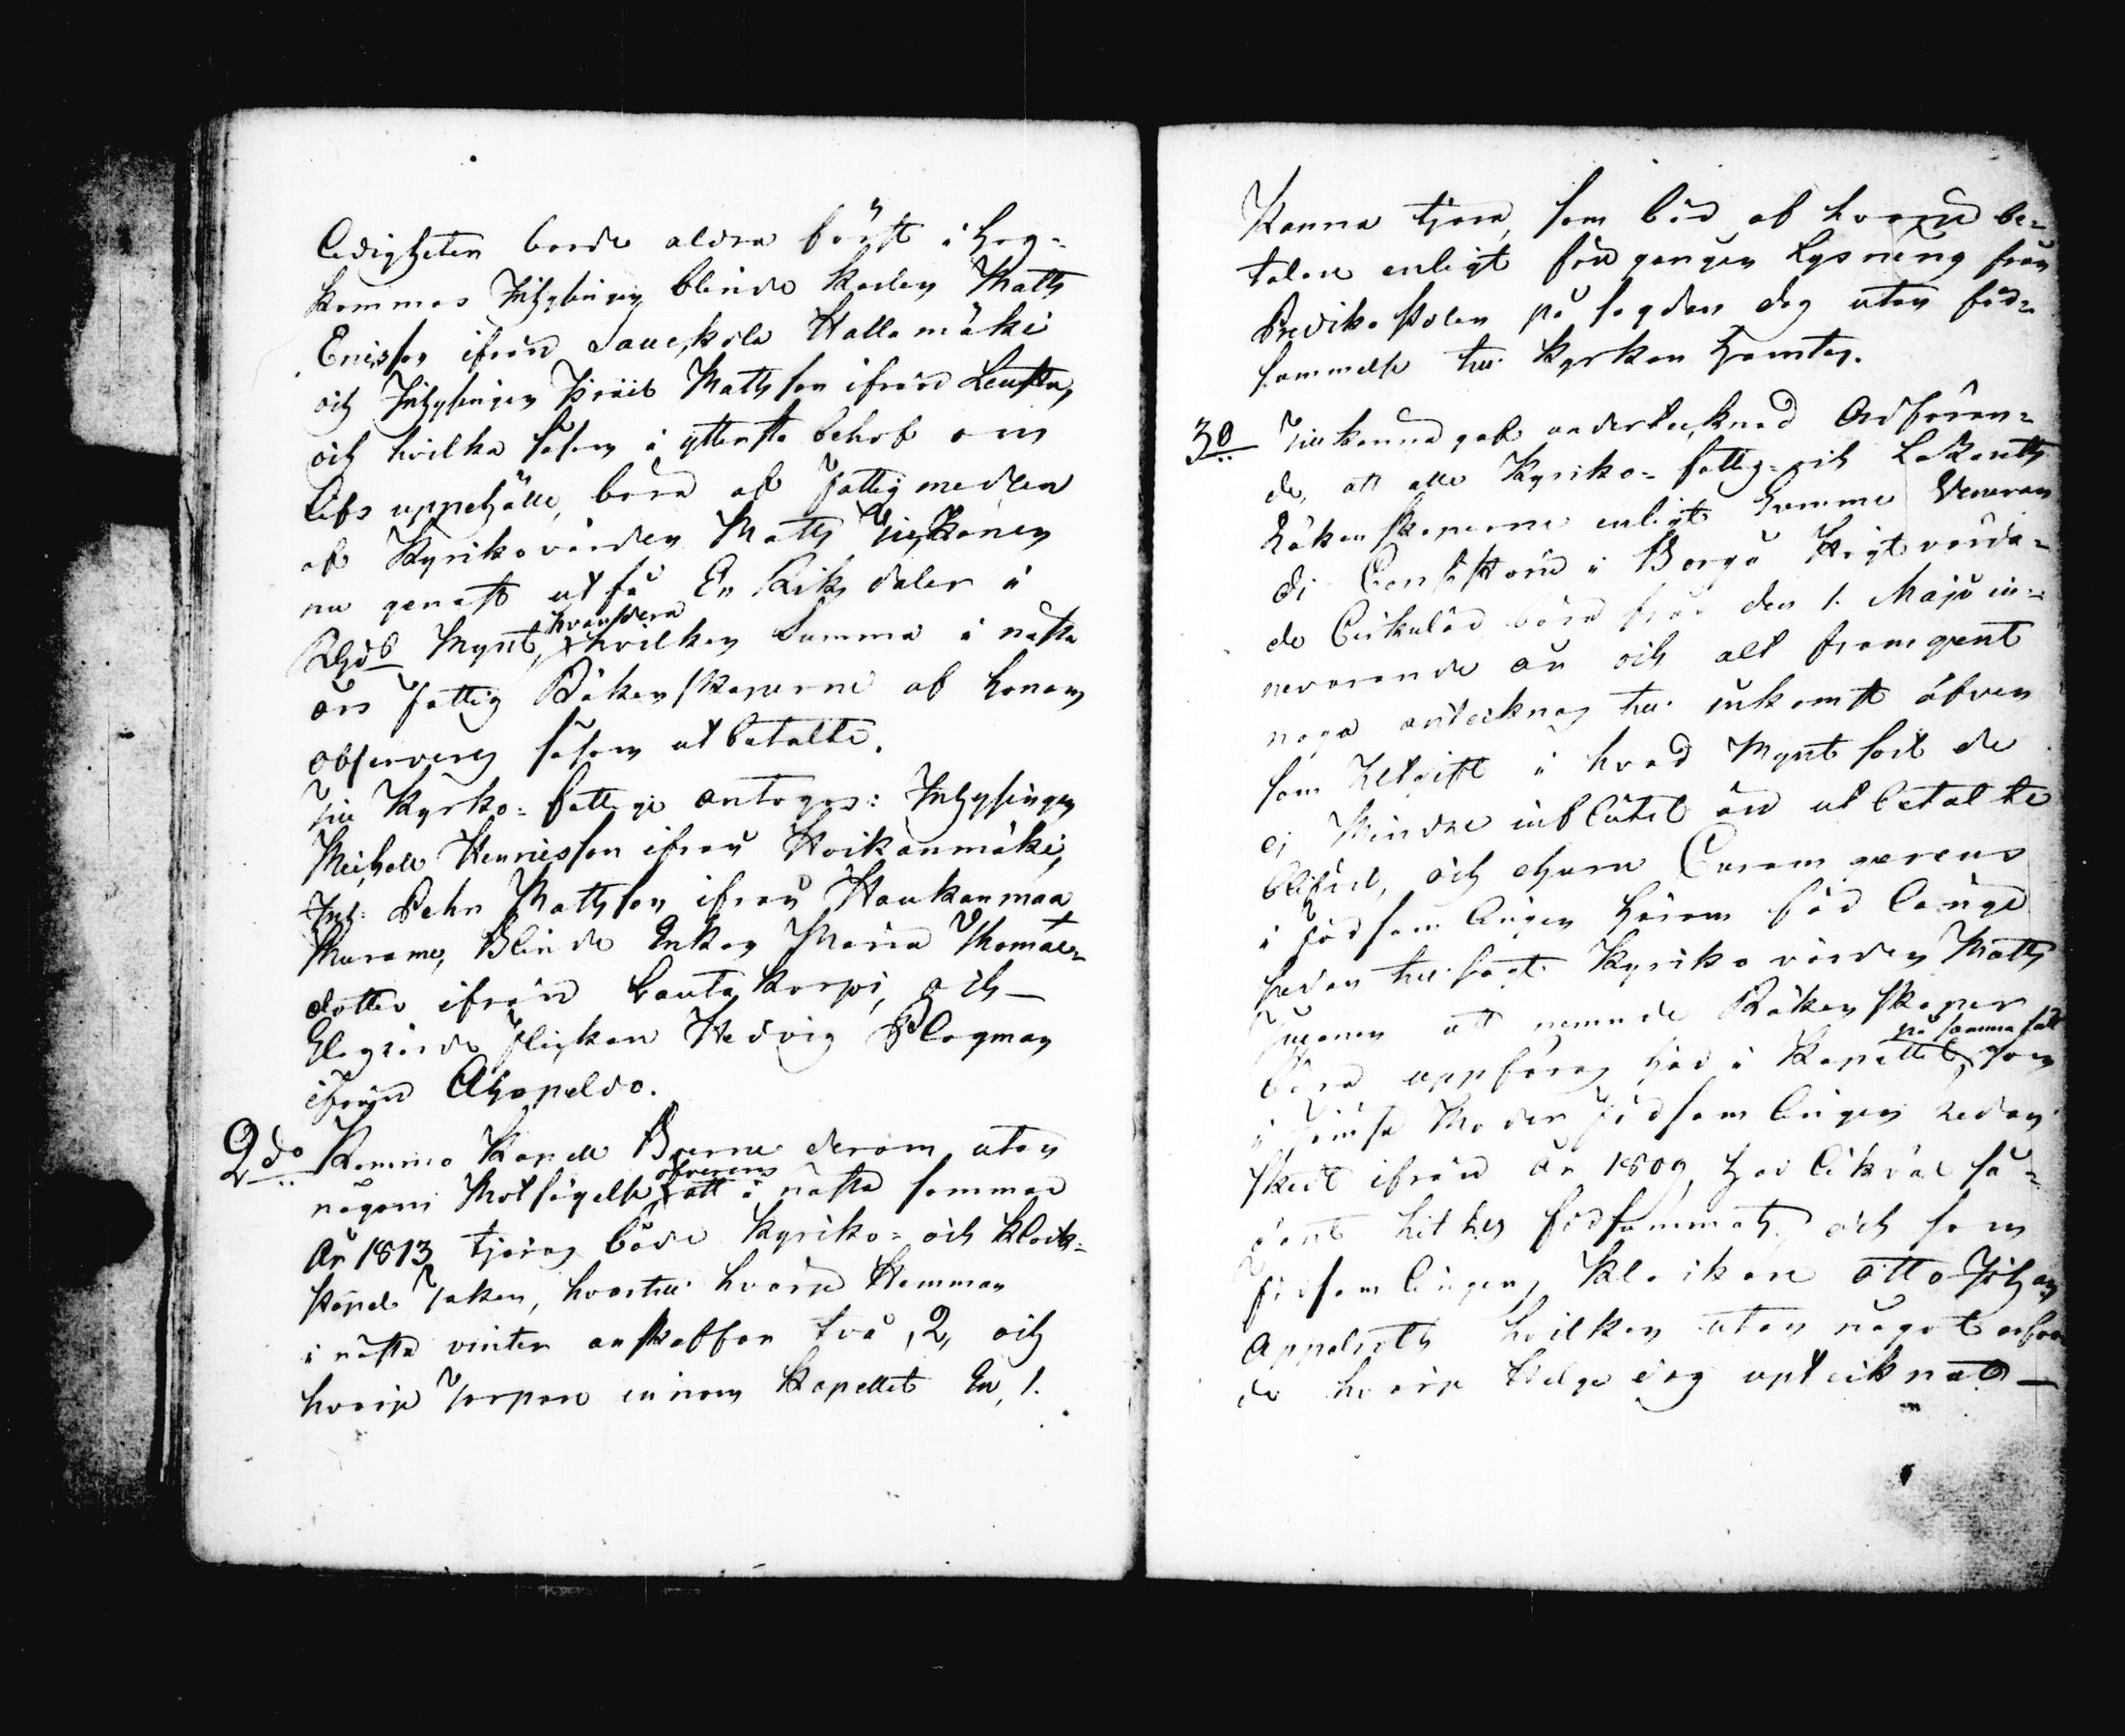 ledigheten borde aldra först i hog-
kommas Inhysingen blinde Karlen Matts
Ericsson ifrån Hallamäki
och Inhysingen Mattsson ifrån
och hvilka såsom i yttersta behof om
lifs uppehälle, böra af Fattigmedlen
af Kyrkovärden Matts
nu genast utfå En Riksdaler i
Rgds Mynt, hvardera hvilken Summa i nästa
års Fattig Räkenskaperne af honom
observeras såsom utbetalte.
Till Kyrko-fattige antogos: Inhysingen
Michell Henricsson ifrån Koikanmäki,
Inh: Pehr Mattsson ifrån Haukanmaa
Murame, Blinde Enkan Maria Thomæ-
dotter ifrån Lautakorpi, och
Flickan Hedvig Plagman
ifrån Ahopeldo.
2do Kommo Kapell Boerne derom utan
någon Motsägelse öfverens att i nästa sommar
år 1813 tjäras både Kyrko- och Klock-
stapel Taken, hvartill hvarje Hemman
i nästa vinter anskaffar två, 2, och
hvarje Torpare innom Kapellet En, 1.
Kanna tjära, som bör af hvarje be-
talas enligt föregången Lysning från
Predikostolen på sagden dag utan för-
summelse till Kyrkan hämtas.
30 Tillkänna gaf undertecknad Ordföran-
de, att alle Kyrko- fattig- och
Räkenskaperne enligt Veneran
di Consistorii i Borgå Högtvörda-
de Cirkulär böra från den 1. Maji in-
nevarande år och alt framgent
noga antecknas till inkomst äfven
som Utgift i hvad Myntsort de
ej Mindre influtit än utbetalte
blifvit, och ehuru Curam gerens
i Församlingen härom för länge
sedan tillsagt Kyrkovärden Matts
att nämnde Räkenskaper
böra uppföras här i Kapellet på samma sätt som
i Moder Församlingen redan
skedt ifrån år 1809, har likväl så-
dant hittils försummats och som
Församlingens Klockare Otto Johan
Appelroth hvilken utan något
de hvarje Helgedag upteknat